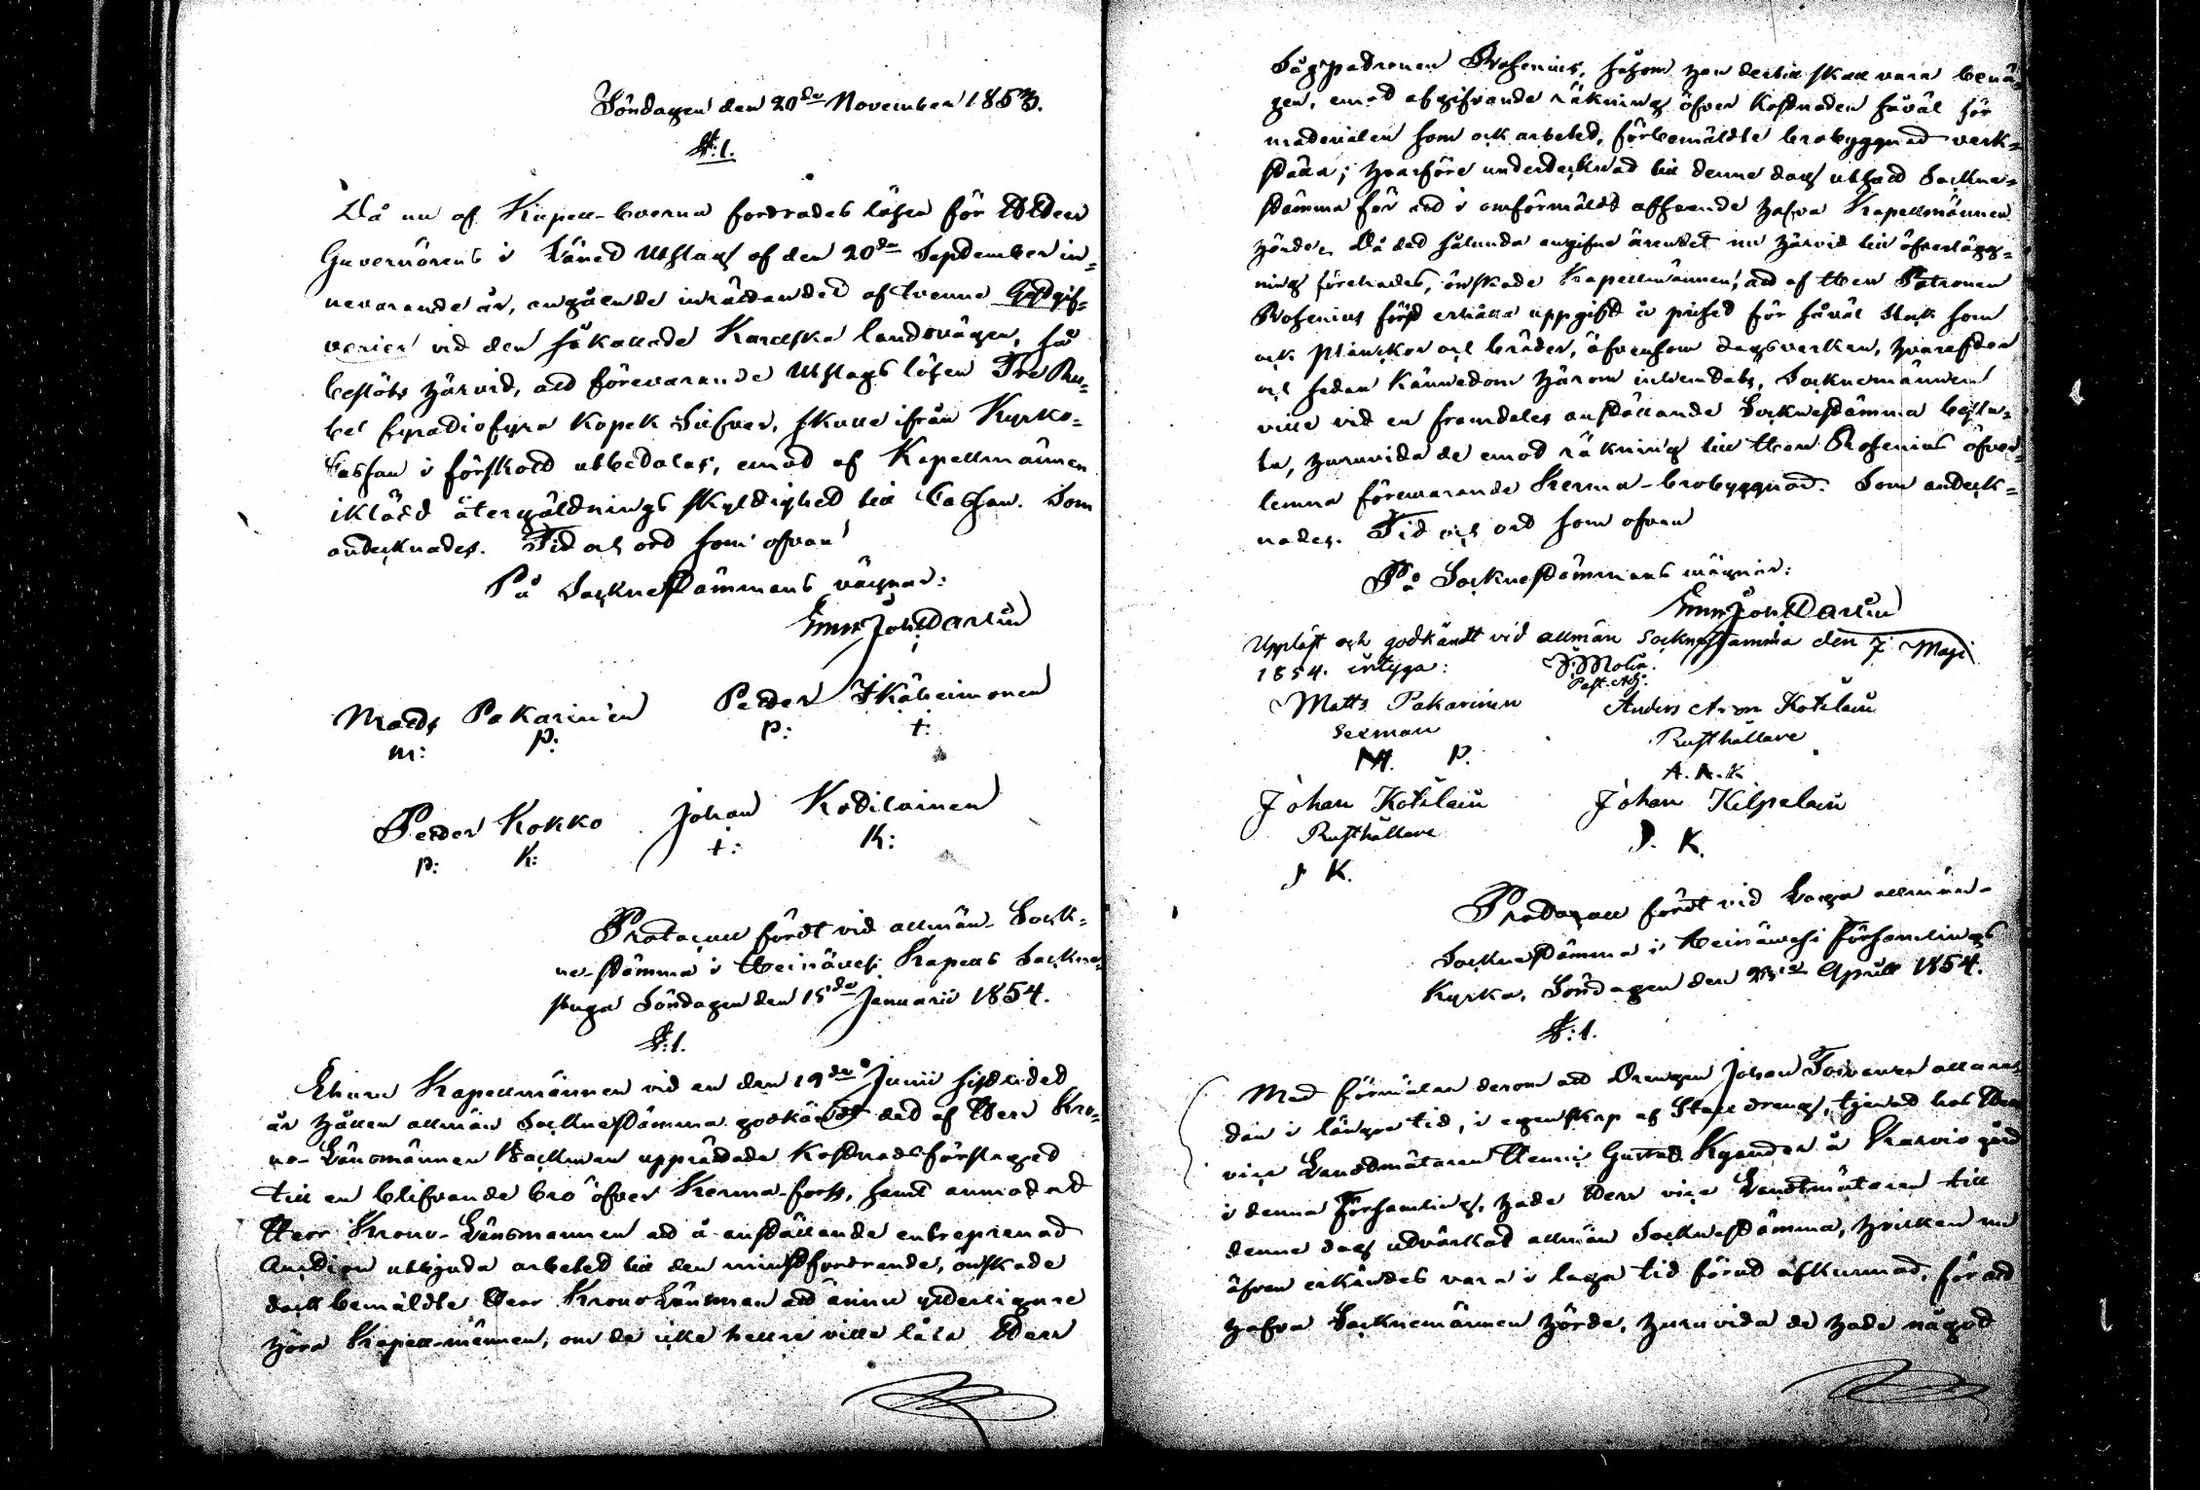 Söndagen den 20de November 1853.
§: 1.
Då nu af Kapell-boerna fordrades lösen för Herr
Guvernörens i Länet Utslag af den 20de September in-
nevarande år, angående inrättandet af tvenne Gästgif-
verier vid den så kallade Karelska landsvägen, så
beslöts härvid, att förevarande Utslags lösen Tre Ru-
bel fyratiofyra Kopek Silfver, skulle ifrån Kyrko-
Cassan i förskott utbetalas, emot af Kapellmännen
iklädd återgäldnings skyldighet till Cassan. Som
antecknades. Tid och ort som ofvan!
På Socknestämmans vägnar:
Emn Joh Darlin
Matts Pakarinen Petter Ikäheimonen
m: p: p: +:
Petter Kokko Johan Kotilainen
p: k: +: K:
Protocoll fördt vid allmän Sock-
ne-stämma i Heinävesi Kapells Sockne-
stuga Söndagen den 15de Januarii 1854.
§: 1.
Ehuru Kapellmännen vid en den 19de Junii sistledet
år hållen allmän Socknestämma godkändt det af Herr Kro-
no-Länsmannen Backman upprättade Kostnadsförslaget
till en blifvande bro öfver Kerma-forss, samt anmodat
Herr Krono-Länsmannen att å anställande entreprenad
Auction utbjuda arbetet till den minstfordrande, önskade
dock bemäldte Herr Krono Länsman att ännu ytterligare
höra Kapell-männen, om de icke hellre ville låta Herr
Sågpatronen Rosenius, såsom han dertill skall vara benä-
gen, emot afgifvande räkning öfver Kostnaden såväl för
materialen som ock arbetet, förbemäldte brobyggnad verk-
ställa; hvarföre undertecknad till denne dag utsatt Sockne-
stämma för att i omförmäldt afseende hafva Kapellmännen
hörde. Då det sålunda angifne ärendet nu härvid till öfverlägg-
ning företrades, önskade Kapellmännen, att af Herr Patronen
Rosenius först erhålla uppgift å priset för såväl stock som
ock planckor och bräder, äfvensom dagsverken, hvarefter
och sedan Kännedom härom inhemtats, Socknemännen
ville vid en framdeles anställande Socknestämma beslu-
ta, huruvida de emot räkning till Herr Rosenius öfver-
lemna förevarande Kerma-brobyggnad. Som anteck-
nades. Tid och ort som ofvan
På Socknestämmans vägnar:
Emn Joh Darlin
Uppläst och godkändt vid allmän Socknestämma den 7 Maji
1854. intyga: J. Molin.
Past. Adj.
Matts Pakarinen Anders Aron Kotilain
Sexman Rusthållare
M. P. A. A. K
Johan Kotilain Johan Kilpelain
Rusthållare J. K.
J K.
Protocoll fördt vid Laga allmän
Socknestämma i Heinävesi Församlings
Kyrka, Söndagen den Aprill 1854.
§: 1.
Med förmälan derom att Drengen Johan Toivanen allare-
dan i längre tid, i egenskap af Stalldreng, tjenat hos Herr
vice Landtmätaren Henric Gustaf Kyander å Karvio gård
i denna Församling, hade Herr vice Landtmätaren till
denne dag utvärkat allmän Socknestämma, hvilken nu
äfven erkändes vara i laga tid förut afkunnad, för att
hafva Socknemännen hörde, huruvida de hade något